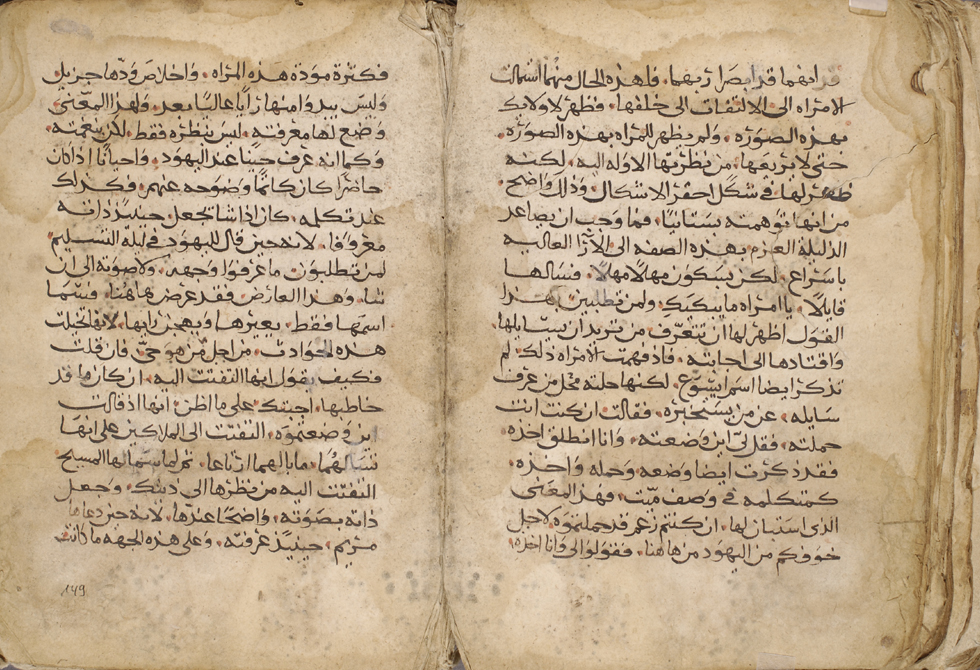 قد ابصرا ربهما. فاهذه الحال منهما استمالت
الامراه الى الالتفات الى خلفها. فظهر لاولايك
بهذه الصوره. ولم يظهر للمراه بهذه الصوره.
حتى لا يريعها. من نظرتها الاوله اليه. لكنه
ظهر لها في شكل احقر الاشكال. وذلك واضح
من انها توهمته بستانيا. فما وجب ان يصاعد
الذليلة العزم بهذه الصفه الى الارآ العاليه
باسراع. لكن يسكون مهلاً مهلاً. فسالها
قايلاً. يا امراه ما يبكيكِ. ولمن تطلبين. بهذا
القول اظهر لها ان تتعرف من تريد ان يسايلها
واقتادها الى اجابته. فاذ فهمت الامراه ذلك لم
تذكر ايضا اسم ايسوع. لكنها حلته محل من عرف
سايله. عن من يستخبره. فقالت ان كنت انت
حملته. فقل لي اين وضعته. وانا انطلق اخذه
فقد ذكرت ايضا وضعه وحمله واخذه.
كمتكلمه في وصف ميت. فهذا المعنى
الذى استبان لها. ان كنتم زعم قد حملتموه لاجل
خوفكم من اليهود من هاهنا. فقولوا لى وانا اخذه.
فكثرة مودة هذه المراه. واخلاص ودها جزيل
وليس يبدوا منها رايا عاليا بعد. ولهذا المعنى
وضع لها معرفته. ليس بنظره فقط. لكن بنغمته.
وكما انه عرف حينا عند اليهود. واحيانا اذ كان
حاضرا كان كاتما وضوحه عنهم. فكذلك
عند تكلمه. كان اذا شا تجعل حينيذ ذاته
معروفا. لانه حين قال لليهود في ليلة التسليم
لمن تطلبون. ما عرفوا وجهه. ولا صوته الى ان
شا. وهذا العارض فقد عرض هاهنا. فسماها
اسمها فقط. يعيرها ويهجن رايها. لانها تخيلت
هذه الحوادث. من اجل من هو حي. فان قلت
فكيف يقول انها التفتت اليه. ان كان قد
خاطبها. اجبتك على ما اظن. انها اذ قالت
اين وضعتموه. التفتت الى الملاكين على انها
تسالهما. ما بالهما ارتاعا. ثم لما سماها المسيح
التفتت اليه من نظرها الى ذينك. وجعل
ذاته بصوته. واضحا عندها. لانه حين دعاها
مريم. حينيذ عرفته. وعلى هذه الجهه ما كانت
149